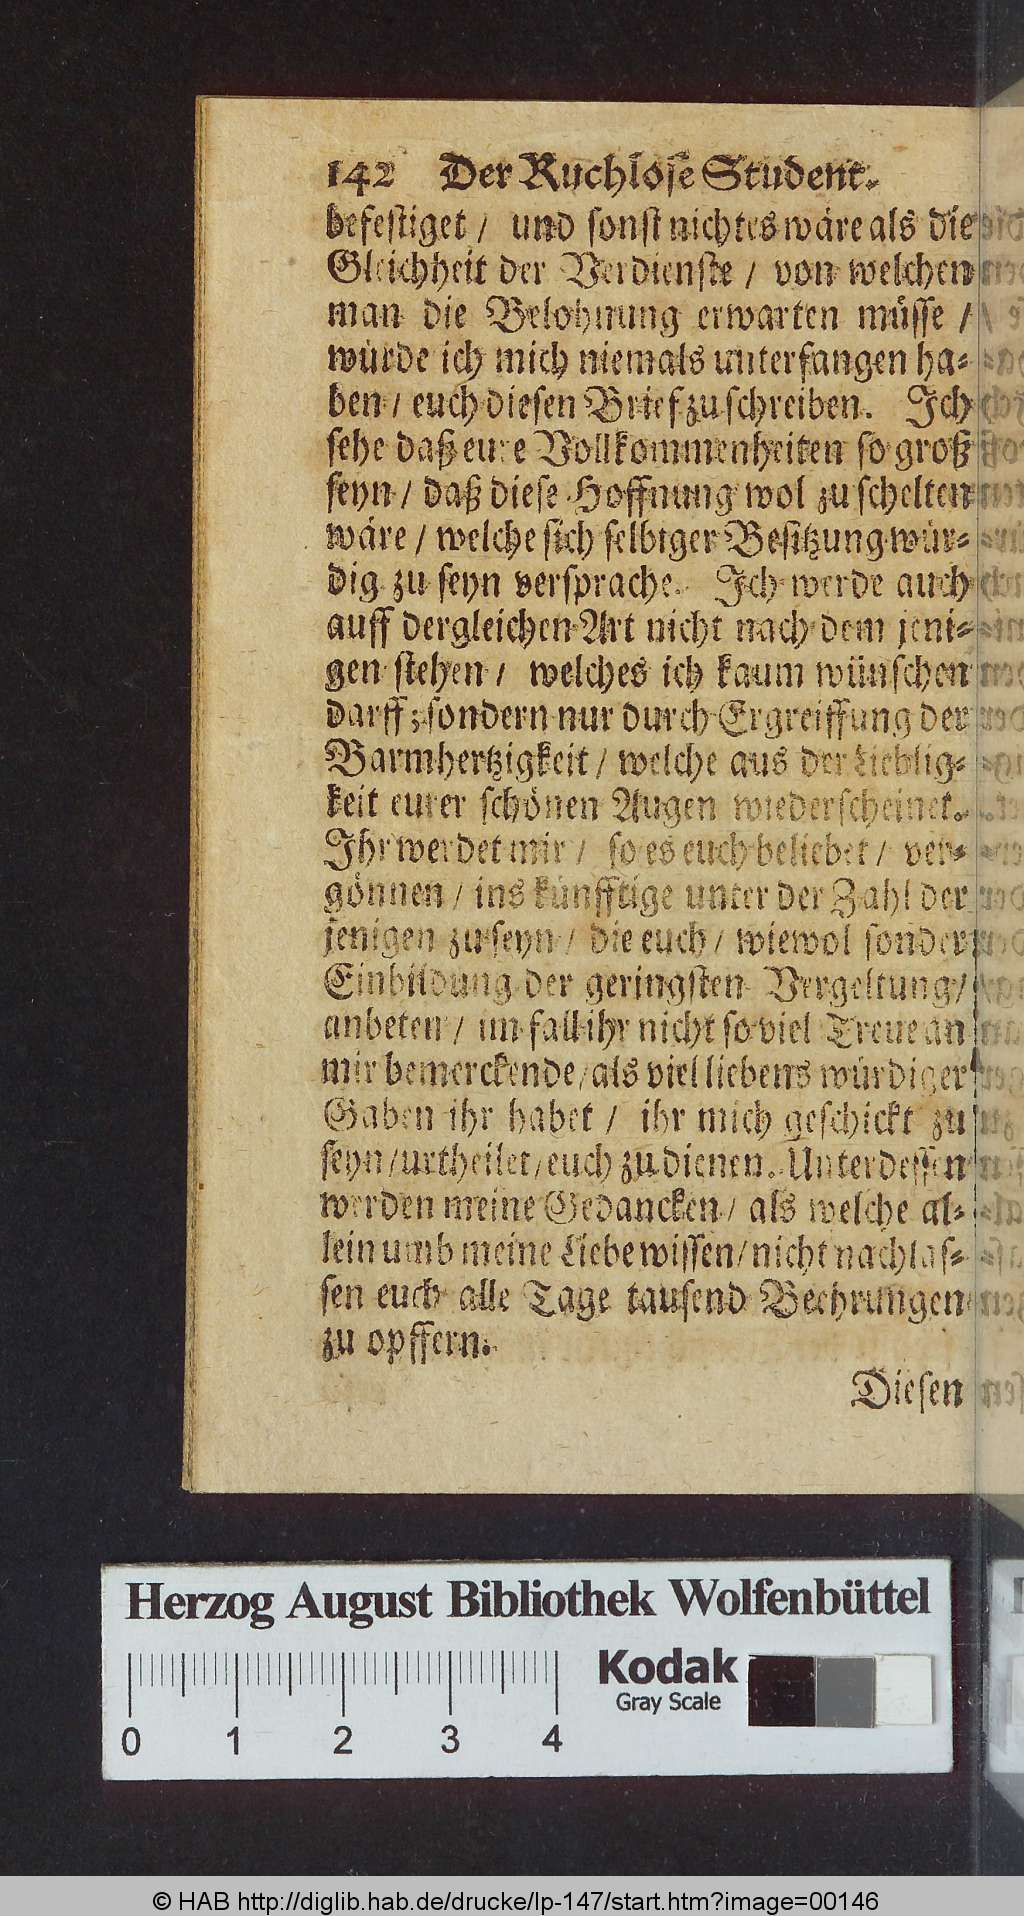 142 Der Ruchlose Student.
befestiget / und sonst nichtes wäre als die
Gleichheit der Verdienste / von welchen
man die Belohnung erwarten müsse /
würde ich mich niemals unterfangen ha-
ben / euch diesen Brief zu schreiben. Ich
sehe daß eure Vollkommenheiten so groß
seyn / daß diese Hoffnung wol zu schelten
wäre / welche sich selbiger Besitzung wür-
dig zu seyn versprache. Ich werde auch
auff dergleichen Art nicht nach dem jeni-
gen stehen / welches ich kaum wünschen
darff; sondern nur durch Ergreiffung der
Barmhertzigkeit / welche aus der Lieblig-
keit eurer schönen Augen wiederscheinet.
Ihr werdet mir / so es euch beliebet / ver-
gönnen / ins künfftige unter der Zahl der
jenigen zu seyn / die euch / wiewol sonder
Einbildung der geringsten Vergeltung /
anbeten / im fall ihr nicht so viel Treue an
mir bemerckende / als viel liebens würdiger
Gaben ihr habet / ihr mich geschickt zu
seyn / urtheilet / euch zu dienen. Unterdessen
werden meine Gedancken / als welche al-
lein umb meine Liebe wissen / nicht nachlas-
sen euch alle Tage tausend Beehrungen
zu opffern.
Diesen
Herzog August Bibliothek Wolfenbüttel
Kodak
Gray Scale
0 1 2 3 4
© HAB http://diglib.hab.de/drucke/lp-147/start.htm?image=00146